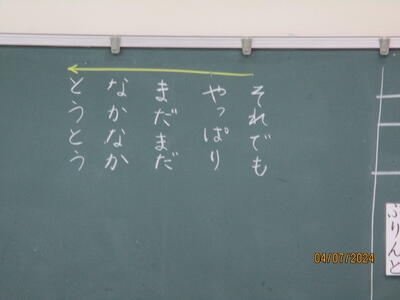 それでも
やっぱり
まだまだ
なかなか
とうとう
ぷりんと
04/07/2024